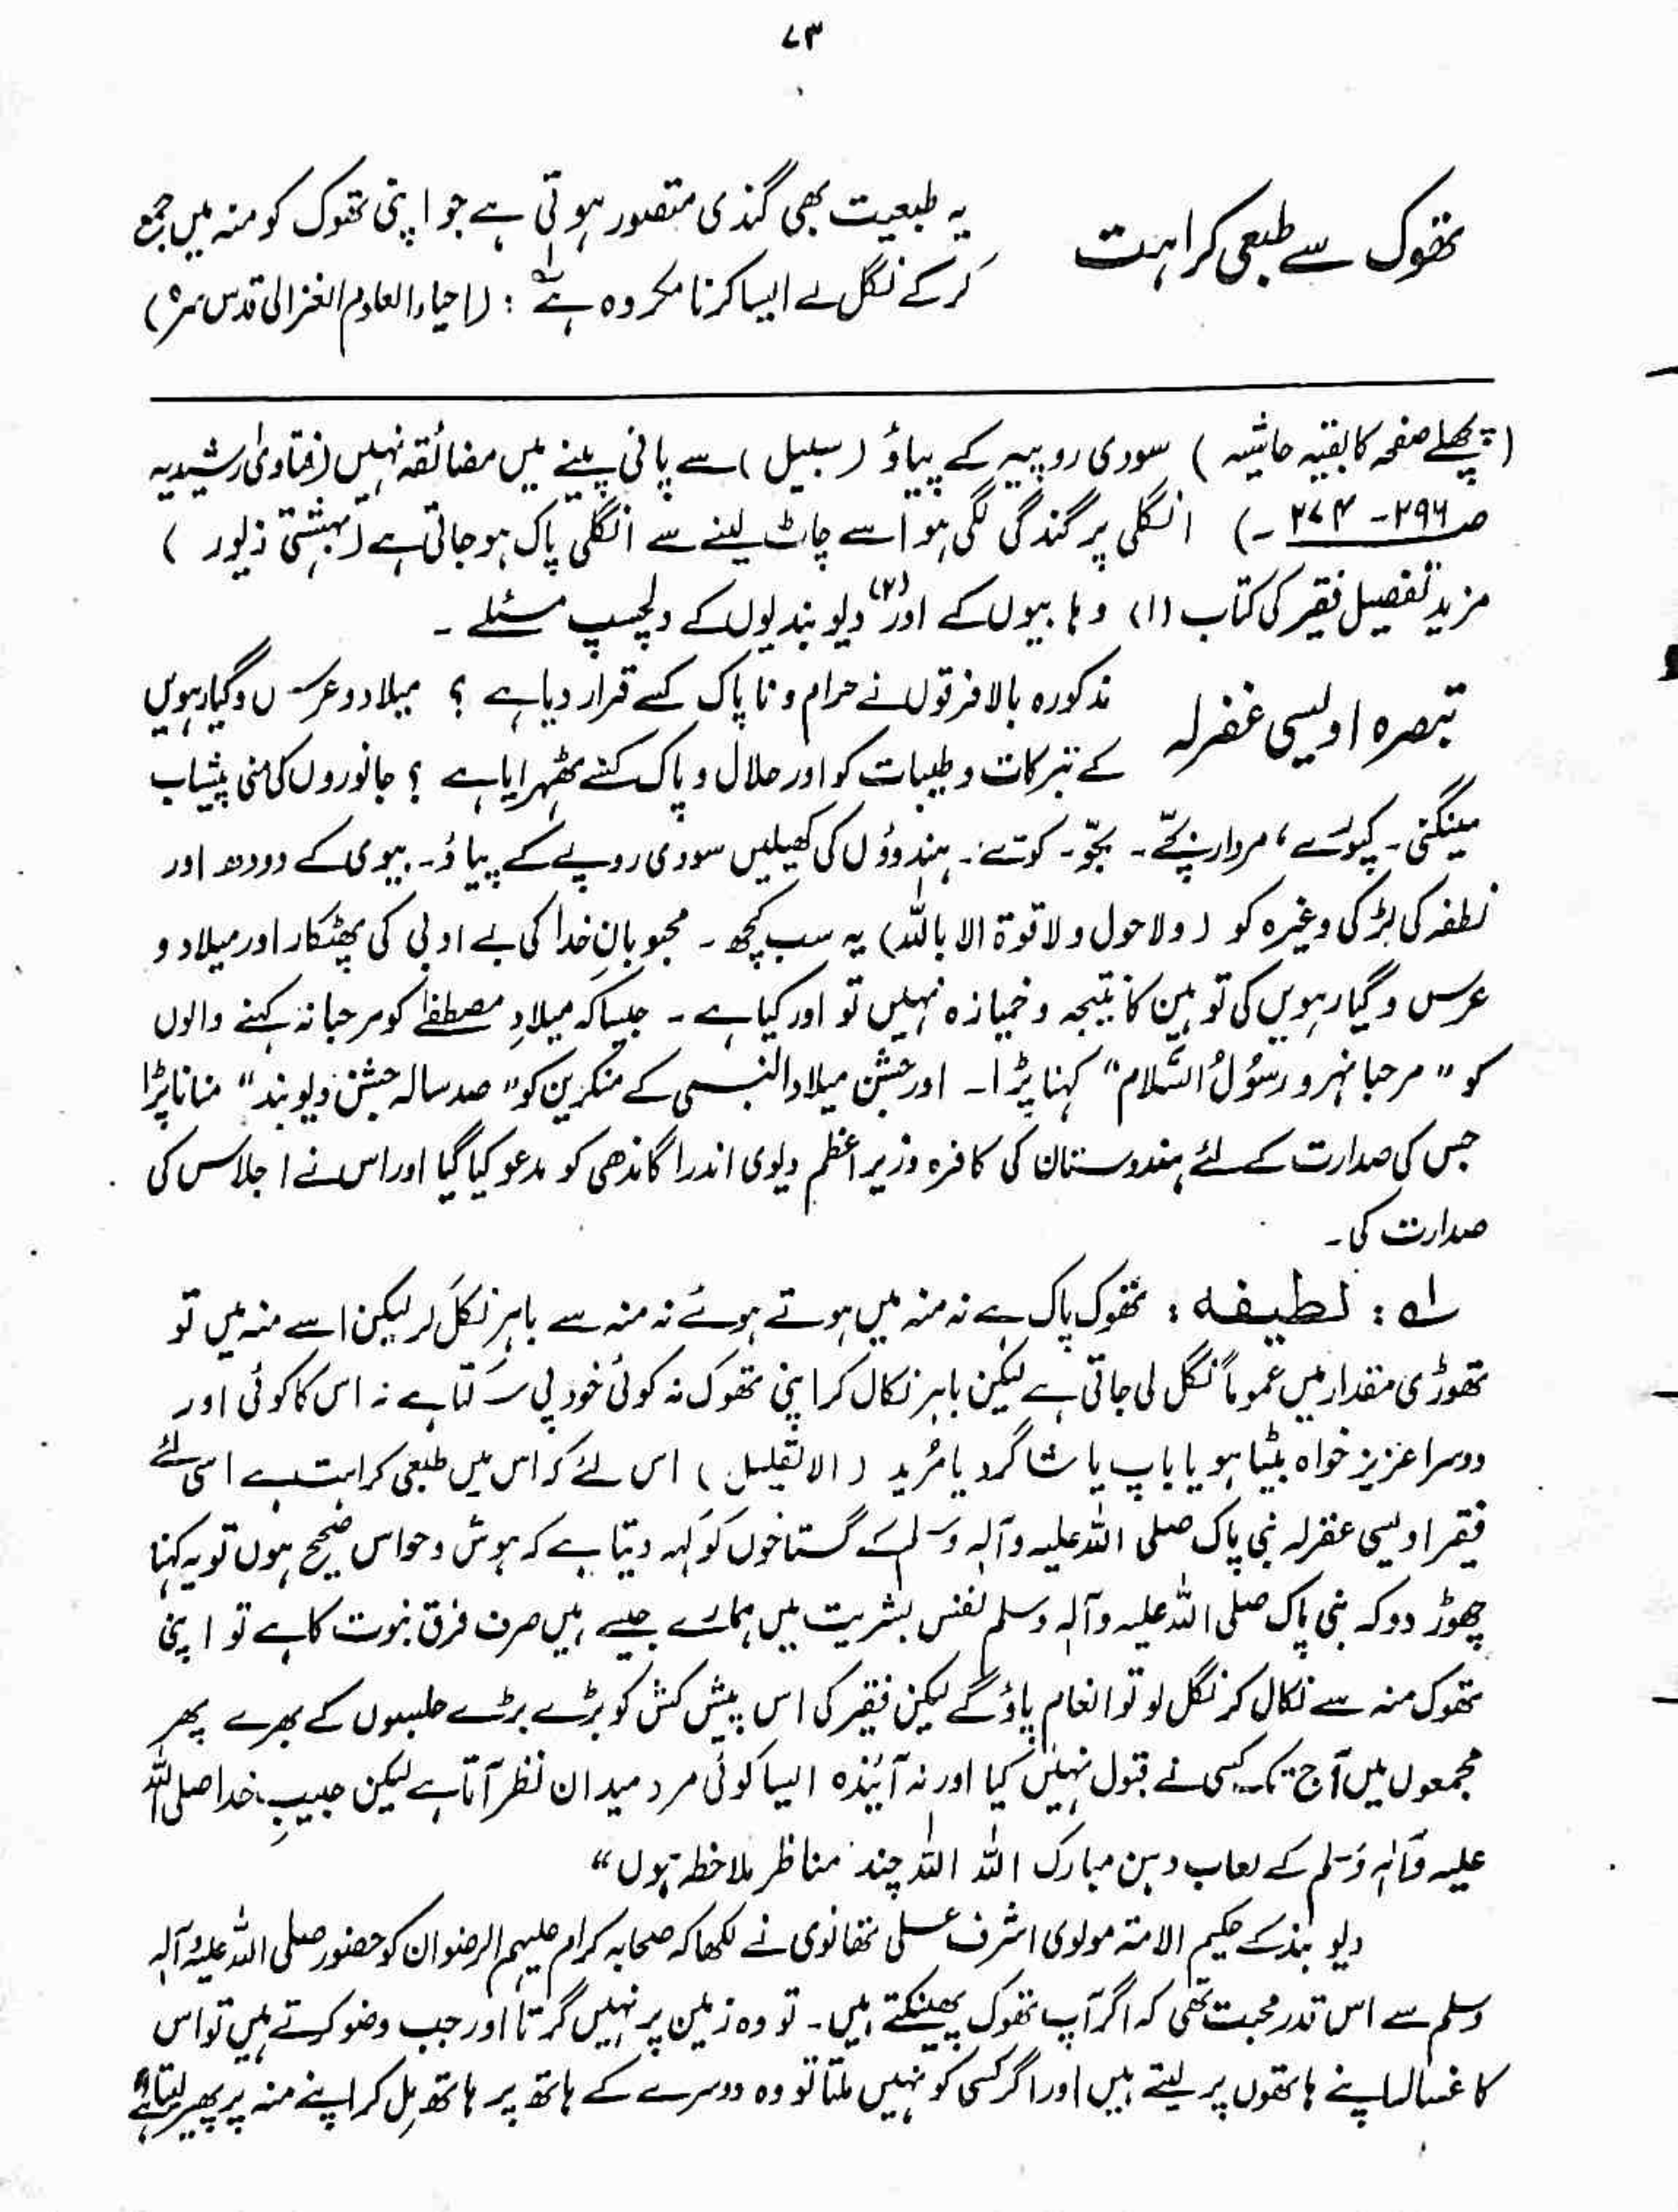 ۷۳
تھوک سے طبعی کراہت
یہ طبعیت بھی گندی متصور ہوتی ہے جو اپنی تھوک کو منہ میں جمع
کرکے نگل لے ایسا کرنا مکروہ ہے لہ : (احیاء العلوم الغزالی قدس سرہ)
(پچھلے صفحہ کا بقیہ حاشیہ) سودی روپیہ کے پیاؤ (سبیل) سے پانی پینے میں مضائقہ نہیں (فتاویٰ رشیدیہ
صـ ۲۹۶ - ۲۷۴ -) انگلی پر گندگی لگی ہو اسے چاٹ لینے سے انگلی پاک ہو جاتی ہے (بہشتی زیور)
مزید تفصیل فقیر کی کتاب (۱) وہابیوں کے اور (۲) دیوبندیوں کے دلچسپ مسئلے ۔
تبصرہ اویسی غفرلہ
مذکورہ بالا فرقوں نے حرام و ناپاک کسے قرار دیا ہے ؟ میلاد و عرس و گیارہویں
کے تبرکات و طیبات کو اور حلال و پاک کسے ٹھہرایا ہے ؟ جانوروں کی منی پیشاب
مینگنی ۔ کپورے ، مردار بچے ۔ بجّو ۔ کوّے ۔ ہندوؤں کی کھیلیں سودی روپے کے پیاؤ ۔ بیوی کے دودھ اور
نطفہ کی لڑکی وغیرہ کو (ولا حول ولا قوۃ الا باللہ) یہ سب کچھ ۔ محبوبانِ خدا کی بے ادبی کی پھٹکار اور میلاد و
عرس و گیارہویں کی توہین کا نتیجہ و خمیازہ نہیں تو اور کیا ہے ۔ جیسا کہ میلادِ مصطفےٰ کو مرحبا نہ کہنے والوں
کو "مرحبا نہرو رسُولُ السَّلام" کہنا پڑا ۔ اور جشن میلاد النبی کے منکرین کو "صد سالہ جشن دیوبند" منانا پڑا
جس کی صدارت کے لئے ہندوستان کی کافرہ وزیر اعظم دیوی اندرا گاندھی کو مدعو کیا گیا اور اس نے اجلاس کی
صدارت کی ۔
لہ : لطیفہ : تھوک پاک ہے نہ منہ میں ہوتے ہوئے نہ منہ سے باہر نکل کر لیکن اسے منہ میں تو
تھوڑی مقدار میں عموماً نگل لی جاتی ہے لیکن باہر نکال کر اپنی تھوک نہ کوئی خود پی سکتا ہے نہ اس کا کوئی اور
دوسرا عزیز خواہ بیٹا ہو یا باپ یا شاگرد یا مُرید (الا لقلیل) اس لئے کہ اس میں طبعی کراہت ہے اسی لئے
فقیر اویسی غفرلہ نبی پاک صلی اللہ علیہ وآلہ وسلم کے گستاخوں کو کہہ دیتا ہے کہ ہوش و حواس صحیح ہوں تو یہ کہنا
چھوڑ دو کہ نبی پاک صلی اللہ علیہ وآلہ وسلم نفس بشریت میں ہمارے جیسے ہیں صرف فرق نبوت کا ہے تو اپنی
تھوک منہ سے نکال کر نگل لو تو انعام پاؤ گے لیکن فقیر کی اس پیش کش کو بڑے بڑے جلسوں کے بھرے پھر
مجمعوں میں آج تک کسی نے قبول نہیں کیا اور نہ آئندہ ایسا کوئی مرد میدان نظر آتا ہے لیکن حبیبِ خدا صلی اللہ
علیہ وَآلہٖ وَسلم کے لعاب دہن مبارک اللہ اللہ چند مناظر ملاحظہ ہوں"
دیوبند کے حکیم الامتہ مولوی اشرف علی تھانوی نے لکھا کہ صحابہ کرام علیہم الرضوان کو حضور صلی اللہ علیہ وآلہ
وسلم سے اس قدر محبت تھی کہ اگر آپ تھوک پھینکتے ہیں ۔ تو وہ زمین پر نہیں گرتا اور جب وضو کرتے ہیں تو اس
کا غسالہ اپنے ہاتھوں پر لیتے ہیں اور اگر کسی کو نہیں ملتا تو وہ دوسرے کے ہاتھ پر ہاتھ مل کر اپنے منہ پر پھیر لیتا ہے